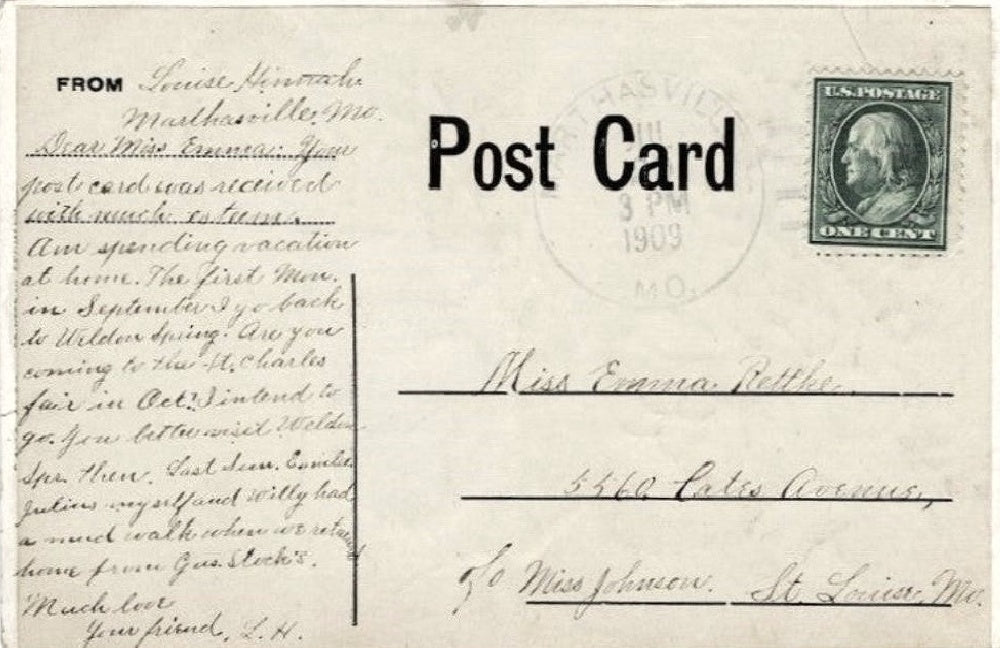 FROM Louise
Marthasville, Mo.
Dear Miss Emma: Your
post card was received
with much esteem.
Am spending vacation
at home. The first Mon.
in September I go back
to Weldon Spring. Are you
coming to the St. Charles
fair in Oct? I intend to
go. You better visit Weldon
Spr. then. Last Sun.
Julius myself and Willy had
a mud walk when we returned
home from Gus. Stock's.
Much love
Your friend, L. H.
Post Card
MARTHASVILLE
JUL
3 PM
1909
MO.
U.S. POSTAGE
ONE CENT
Miss Emma Rethke,
5560 Cates Avenue,
c/o Miss Johnson. St. Louis, Mo.